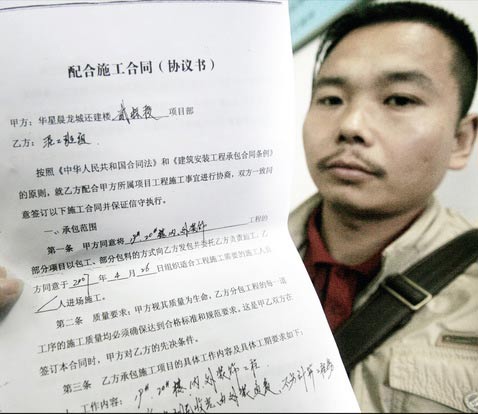 配合施工合同（协议书）
甲方：华星晨龙城还建楼 项目部
乙方：
按照《中华人民共和国合同法》和《建筑安装工程承包合同条例》
的原则，就乙方配合甲方所属项目工程施工事宜进行协商，双方一致同
意签订以下施工合同并保证信守执行。
一、承包范围
第一条 甲方同意将 19#、20#楼内外装修 工程的
部分项目以包工、部分包料的方式向乙方发包并委托乙方负责施工，乙
方同意于 2007 年 4 月 26 日组织适合工程施工需要的施工人员
人进场施工。
第二条 质量要求：甲方视其质量为生命，乙方分包工程的每一道
工序的施工质量均必须确保达到合格标准和规范要求。这是甲乙双方在
签订本合同时，甲方对乙方的先决条件。
第三条 乙方承包施工项目的具体工作内容及具体工期要求如下：
1、工作内容：19#、20#楼内外装饰工程